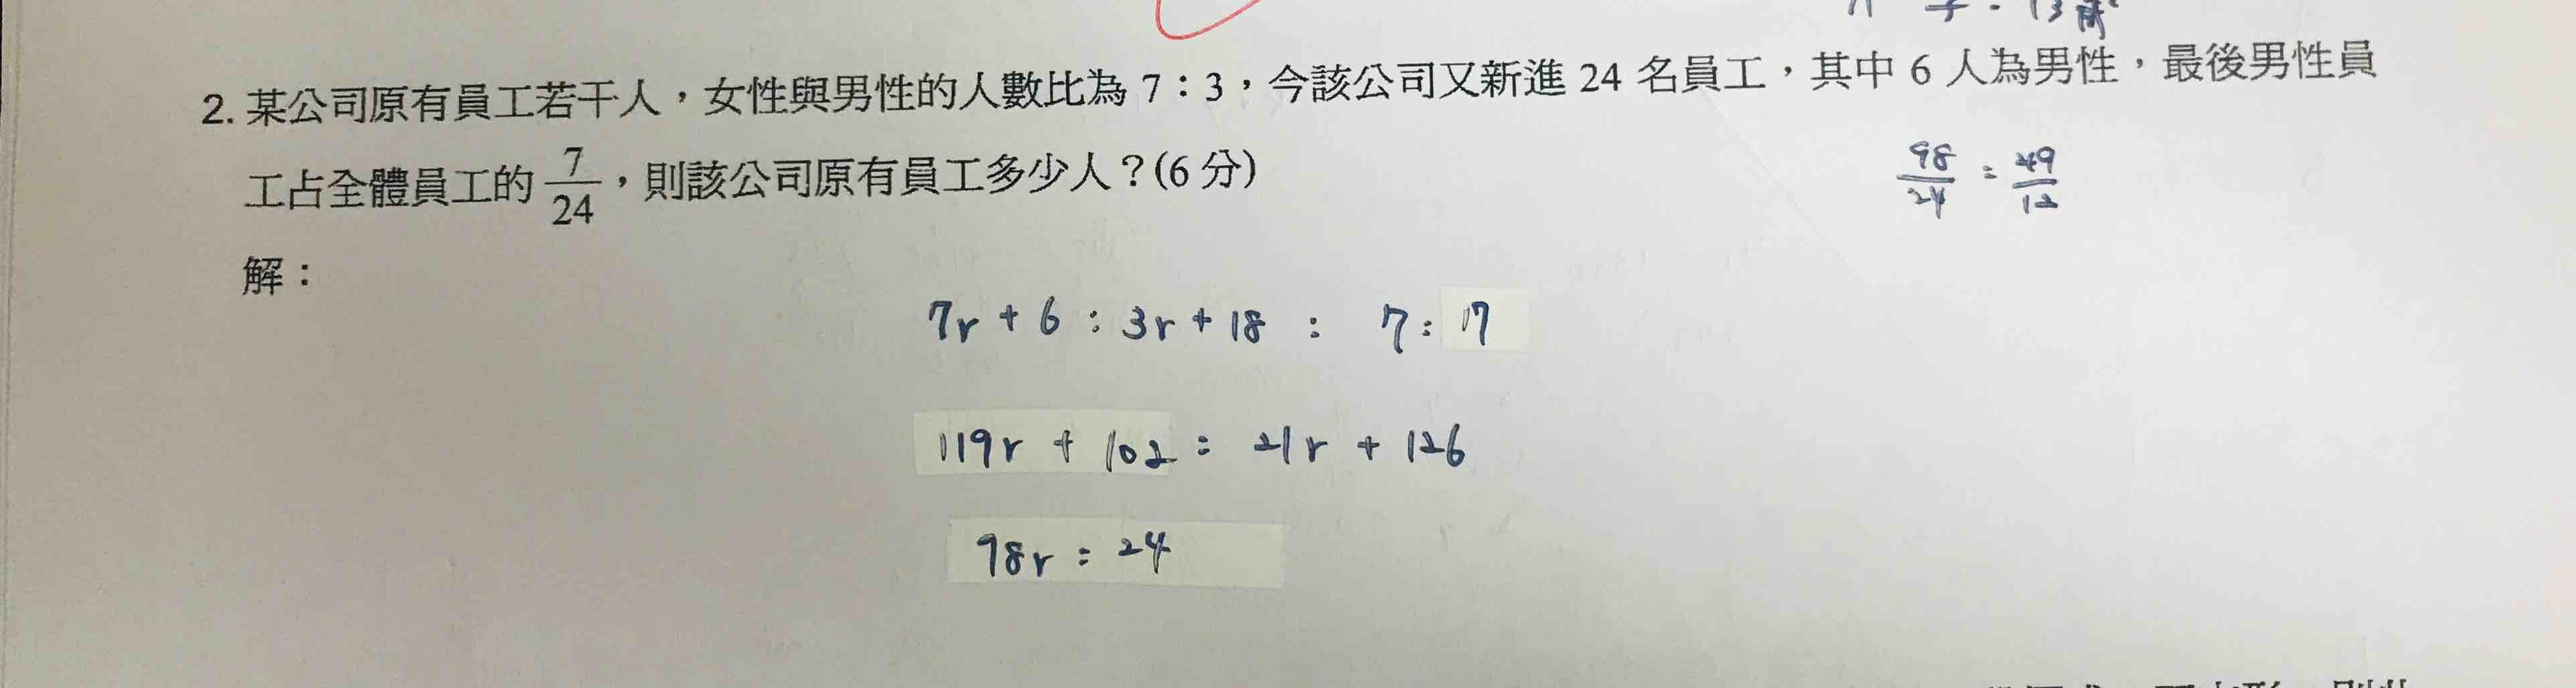 2. 某公司原有員工若干人，女性與男性的人數比為 7：3，今該公司又新進 24 名員工，其中 6 人為男性，最後男性員
工占全體員工的 7/24，則該公司原有員工多少人？(6 分)
98/24 = 49/12
解：
7r + 6 : 3r + 18 : 7 : 17
119r + 102 = 21r + 126
98r = 24